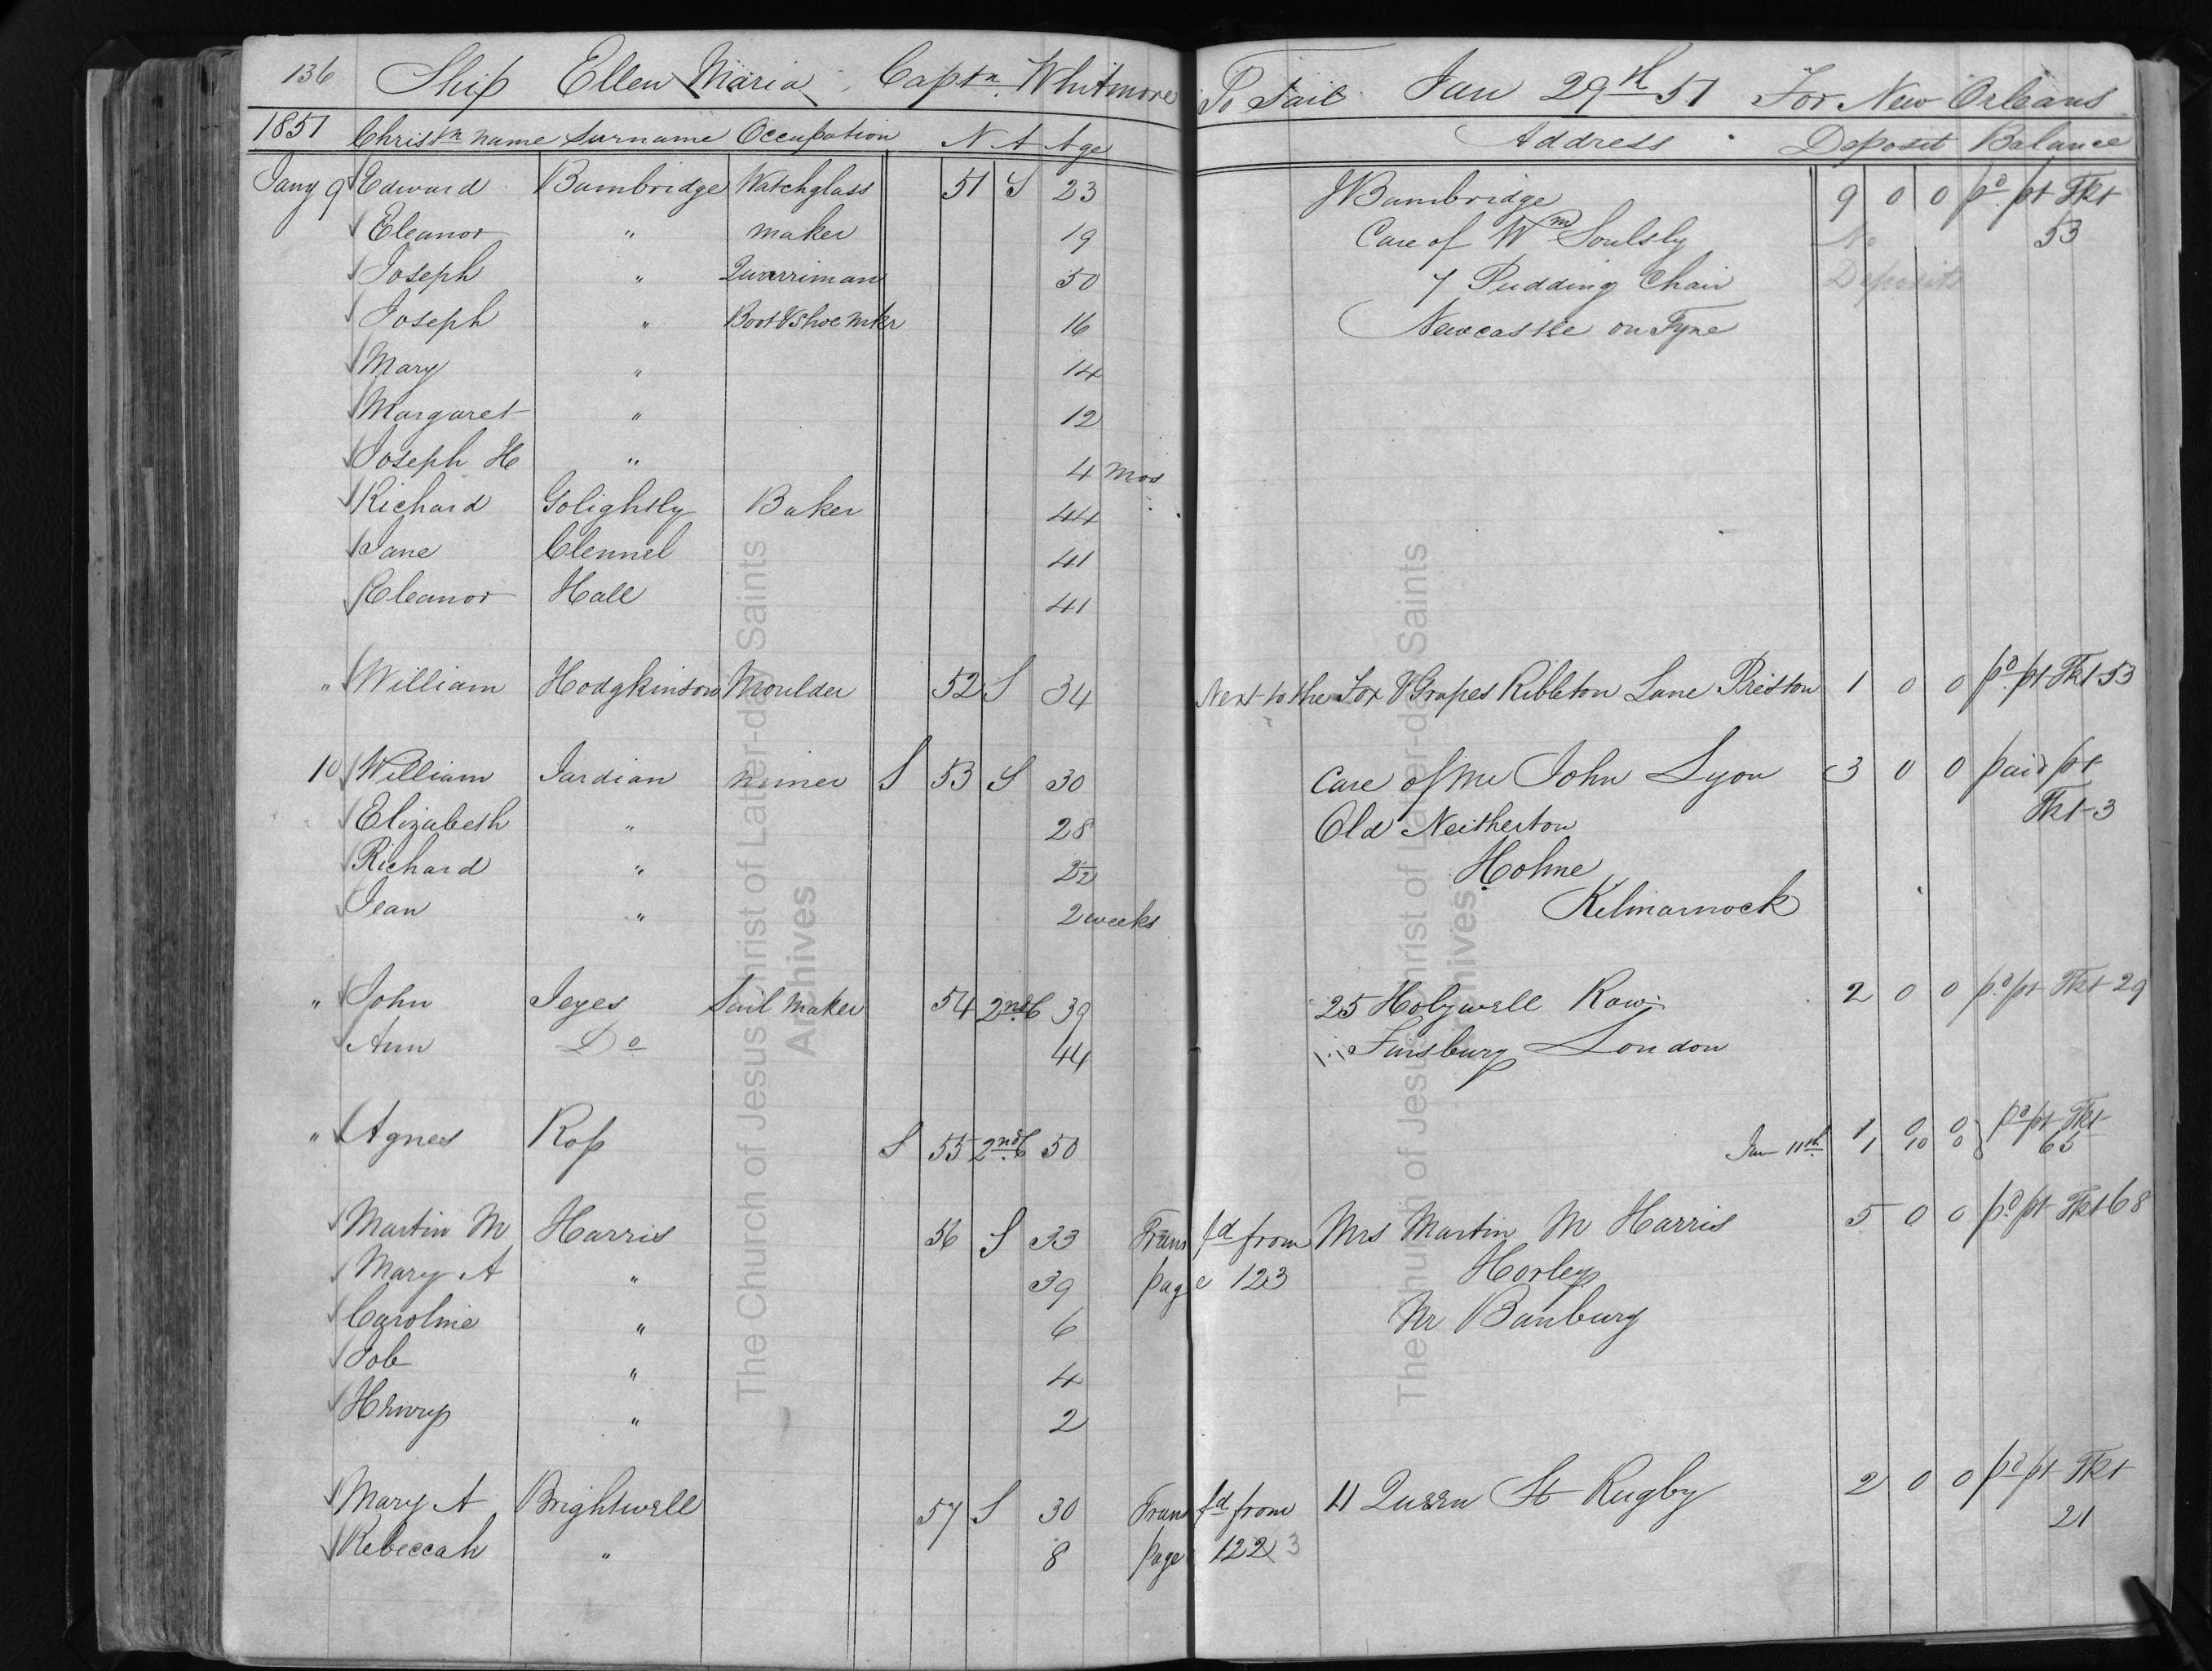 136 Ship Ellen Maria, Captn. Whitmore To Sail Jan 29th 51 For New Orleans
1851 Christn name Surname Occupation N A Age Address Deposit Balance
Jany 9 Edward Bambridge Watchglass 51 S 23 J Bambridge 9 0 0 pd. pt Tkt
Eleanor " maker 19 Care of Wm Soulsly No 53
Joseph " Quarriman 50 7 Pudding Chair Deposits
Joseph " Boot & Shoe Mkr 16 Newcastle on Tyne
Mary " 14
Margaret " 12
Joseph H " 4 Mos
Richard Golightly Baker 44
Jane Clennel 41
Eleanor Hall 41
" William Hodgkinson Moulder 52 S 34 Next to the Fox & Grapes Ribleton Lane Preston 1 0 0 pd. pt Tkt 53
10 William Jardian Miner S 53 S 30 Care of Mr John Lyon 3 0 0 paid pt
Elizabeth " 28 Old Neitherton Tkt 3
Richard " 2½ Holme
Jean " 2 weeks Kilmarnock
" John Jeyes Sail Maker 54 2nd C 39 25 Holywell Row 2 0 0 pd. pt Tkt 29
Ann Do 44 Finsbury London
" Agnes Ross S 55 2nd C 50 1 0 0 pd pt Tkt
Jan 11th 1 10 0 65
Martin M Harris 56 S 33 Transfd from Mrs Martin M Harris 5 0 0 pd. pt Tkt 68
Mary A " 39 page 123 Horley
Caroline " 6 Nr Banbury
Job " 4
Henry " 2
Mary A Brightwell 57 S 30 Transfd from 11 Queen St Rugby 2 0 0 pd pt Tkt
Rebeccah " 8 page 122 3 21
The Church of Jesus Christ of Latter-day Saints
Archives
The Church of Jesus Christ of Latter-day Saints
Archives